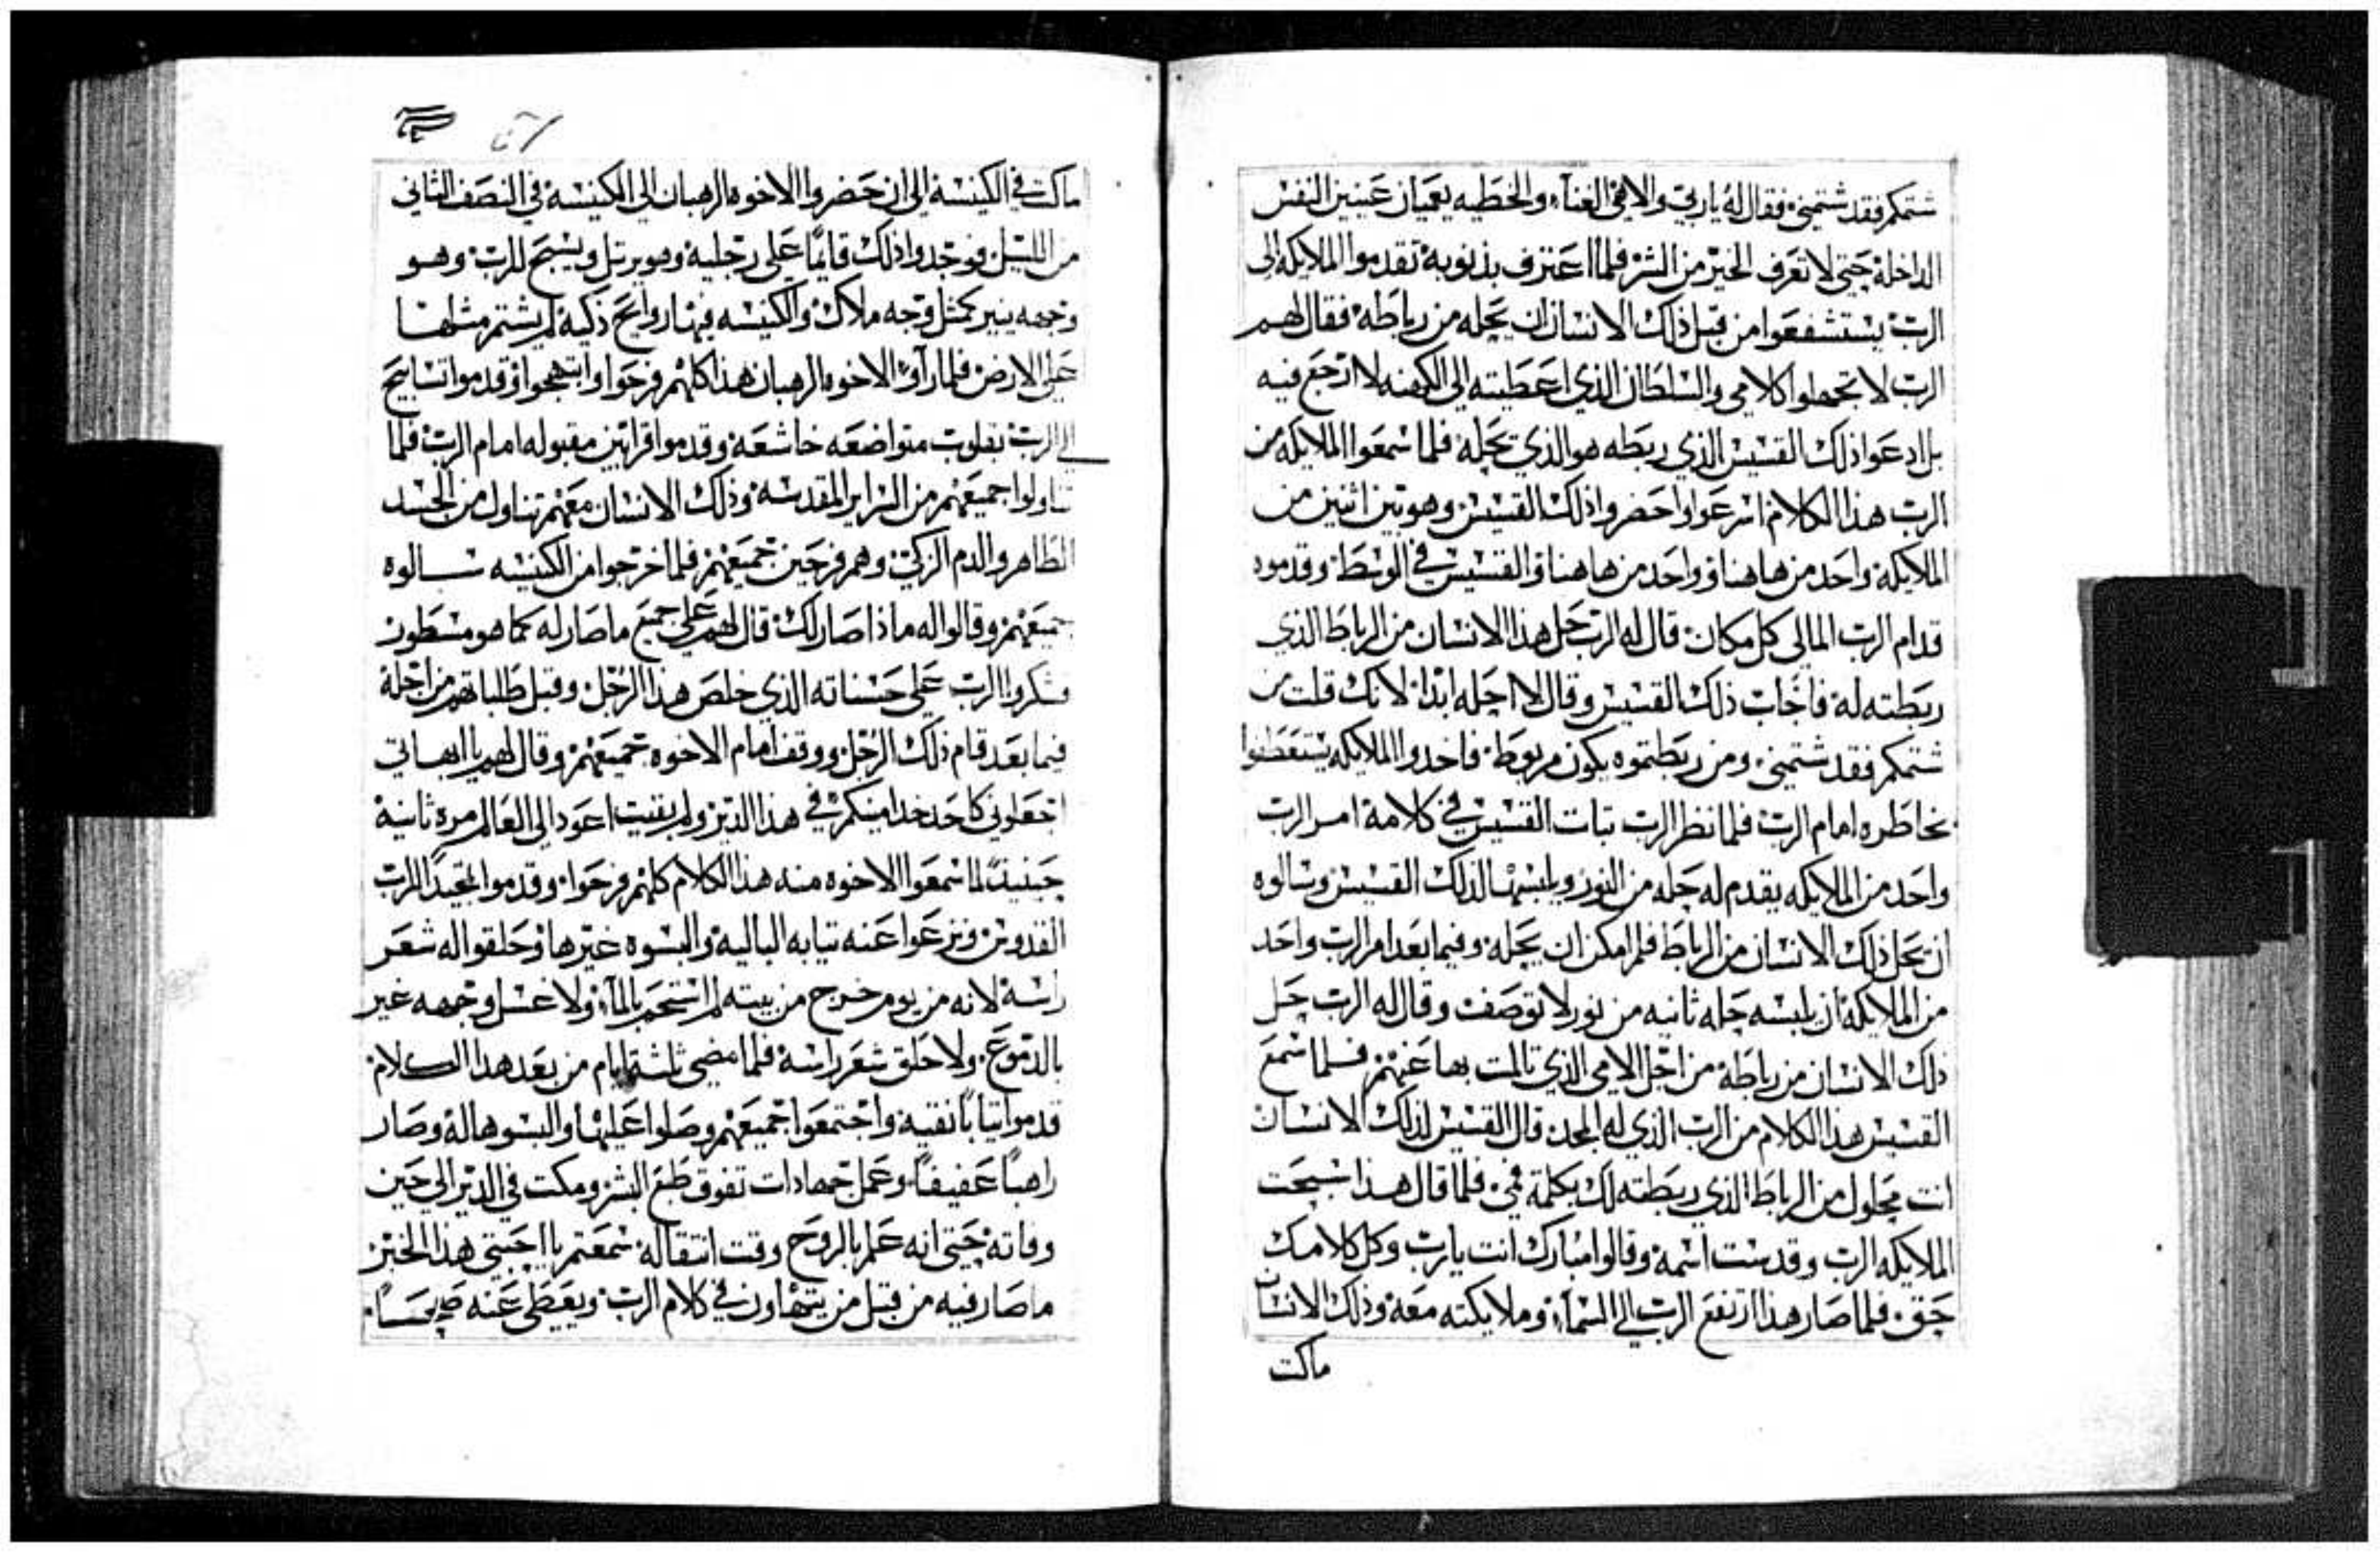 شتمكم فقد شتمني فقال له ياربي والاهي الغناء والخطيه يعميان عينين النفس
الداخلة حتي لا تعرف الخير من الشر فلما اعترف بذنوبه تقدموا الملايكه الى
الرب يستشفعوا من قبل ذلك الانسان ان يحله من رباطه فقال لهم
الرب لا تجهلوا كلامي والسلطان الذي اعطيته الى الكهنه لا ارجع فيه
بل ادعوا ذلك القسيس الذي ربطه هو الذي يحله فلما سمعوا الملايكه من
الرب هذا الكلام اسرعوا واحضروا ذلك القسيس وهو بين اثنين من
الملايكة واحد من هاهنا وواحد من هاهنا والقسيس في الوسط وقدموه
قدام الرب المالى كل مكان قال له الرب حل هذا الانسان من الرباط الذي
ربطته له فاجاب ذلك القسيس وقال لا احله ابدا لانك قلت من
شتمكم فقد شتمني ومن ربطتموه يكون مربوط فاخدوا الملايكه يستعطفوا
بخاطره امام الرب فلما نظر الرب تبات القسيس في كلامه امر الرب
واحد من الملايكه يقدم له حله من النور ويلبسها لذلك القسيس وسالوه
ان يحل ذلك الانسان من الرباط فلم امكن ان يحله وفيما بعد امر الرب واحد
من الملايكة ان يلبسه حله ثانيه من نور لا توصف وقال له الرب حل
ذلك الانسان من رباطه من اجل الامي الذي تالمت بها عنهم فلما سمع
القسيس هذا الكلام من الرب الذي له المجد قال القسيس لذلك الانسان
انت محلول من الرباط الذي ربطته لك بكلمة فمي فلما قال هذا سبحت
الملايكه الرب وقدست اسمه وقالوا مبارك انت يارب وكل كلامك
حق فلما صار هذا ارتفع الرب الي السماء وملايكته معه وذلك الانسان
ماكت
ماكت في الكنيسة الى ان حضروا الاخوه الرهبان الى الكنيسه في النصف الثاني
من الليل فوجدوا ذلك قايمًا على رجليه وهو يرتل ويسبح للرب وهو
وجهه ينير كمثل وجه ملاك والكنيسه فيها روايح ذكية لم يشتم مثلها
على الارض فلما راوا الاخوه الرهبان هذا كلهم فرحوا وابتهجوا وقدموا تسابيح
الي الرب بقلوب متواضعه خاشعة وقدموا قرابين مقبوله امام الرب فلما
تناولوا جميعهم من السراير المقدسه وذلك الانسان معهم تناول من الجسد
الطاهر والدم الزكي وهم فرحين جميعهم فلما خرجوا من الكنيسه سالوه
جميعهم وقالوا له ماذا صار لك قال لهم على جميع ما صار له كما هو مسطور
فشكروا الرب على حسناته الذي خلص هذا الرجل وقبل طلباتهم من اجله
فيما بعد قام ذلك الرجل ووقف امام الاخوه جميعهم وقال لهم يا ابهاتي
اجعلوني كاحد خدامينكم في هذا الدير ولم بقيت اعود الى العالم مره ثانية
حينيذ لما سمعوا الاخوه منه هذا الكلام كلهم فرحوا وقدموا تمجيدًا للرب
القدوس ونزعوا عنه تيابه الباليه والبسوه غيرها وحلقوا له شعر
راسه لانه من يوم خرج من بيته لم استحم بالماء ولا غسل وجهه غير
بالدموع ولا حلق شعر راسه فلما مضى ثلثة ايام من بعد هدا الكلام
قدموا تيابًا نقيه واجتمعوا جميعهم وصلوا عليها والبسوها له وصار
راهبًا عفيفًا وعمل جهادات تفوق طبع البشر ومكت في الدير الى حين
وفاته حتى انه علم بالروح وقت انتقاله سمعتم يا احبتي هذا الخبر
ما صار فيه من قبل من يتهاون في كلام الرب ويعطى عنه